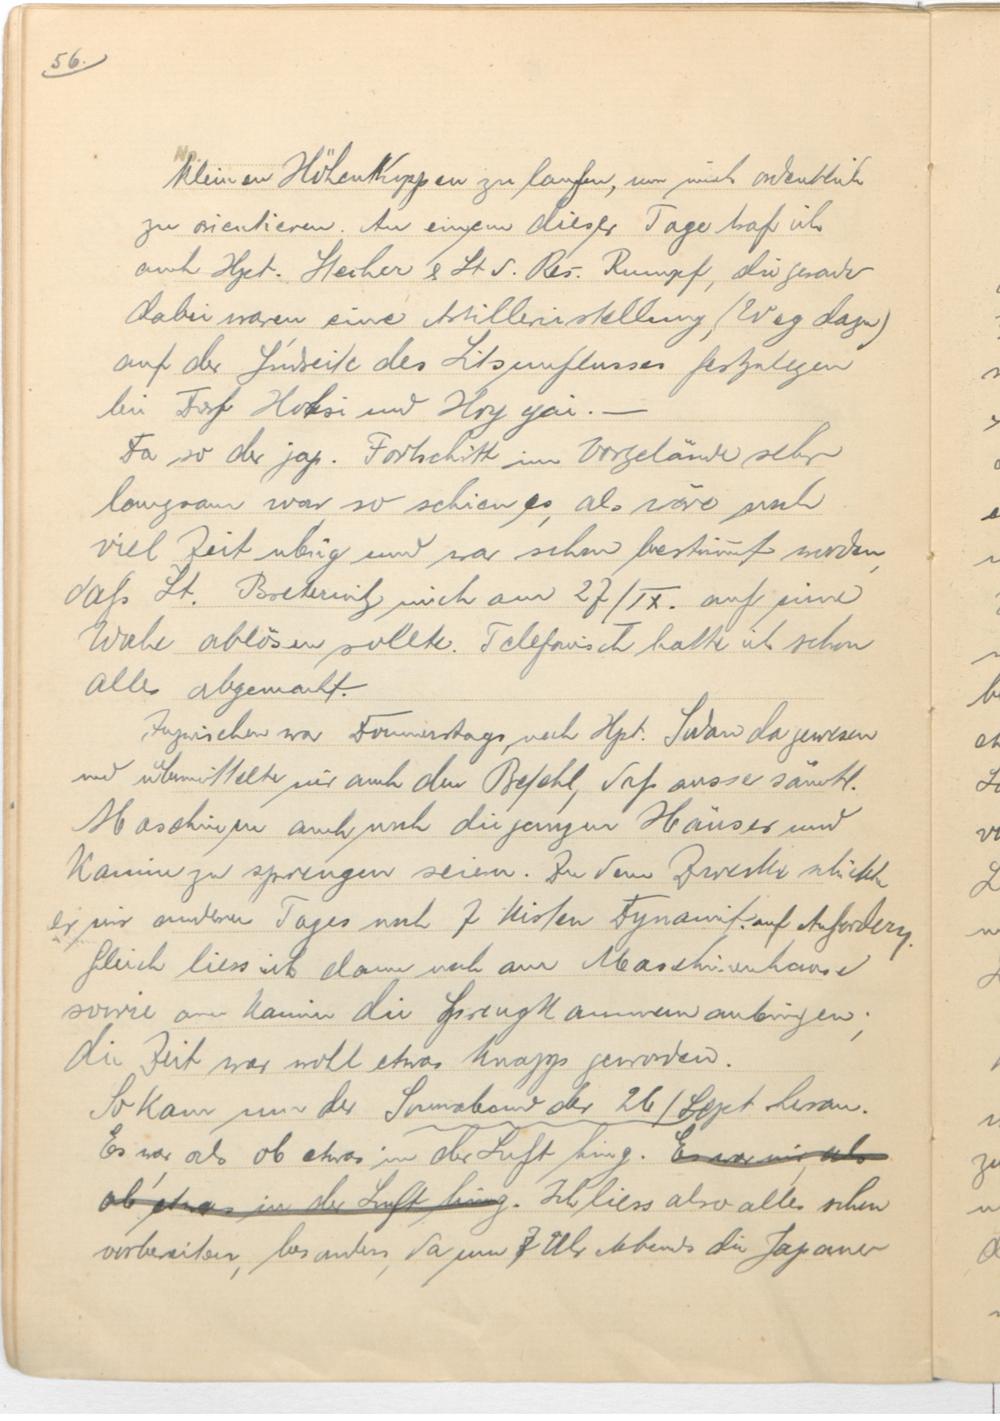 56.
kleinen Höhenkuppen zu laufen, um mich ordentlich
zu orientieren. An einem dieser Tage traf ich
auch Hpt. Stecher & Lt d. Res. Rumpf, die gerade
dabei waren eine Artilleriestellung, (Weg dazu)
auf der Südseite des Litsunflusses festzulegen
bei Dorf Hoksi und
Da so der jap. Fortschritt im Vorgelände sehr
langsam war so schien es, als wäre noch
viel Zeit übrig und war schon bestimmt worden,
daß Lt. mich am 27/IX. auf eine
Woche ablösen sollte. Telefonisch hatte ich schon
alles abgemacht.
Inzwischen war Donnerstags noch Hpt. da gewesen
und übermittelte mir auch den Befehl, daß ausser sämtl.
Maschinen auch noch die ganzen Häuser und
Kamin zu sprengen seien. Zu dem Zwecke schickte
er mir anderen Tages noch 7 Kisten Dynamit auf Anforderg.
Gleich liess ich dann noch am Maschinenhause
sowie am Kamin die Sprengkammern anbringen;
die Zeit war wohl etwas knapp geworden.
So kam nun der Sonnabend der 26/Sept heran.
Es war, als ob etwas in der Luft hing. Es war mir, als
ob etwas in der Luft hing. Ich liess also alles schon
vorbereiten, besonders, da um 7 Uhr Abends die Japaner